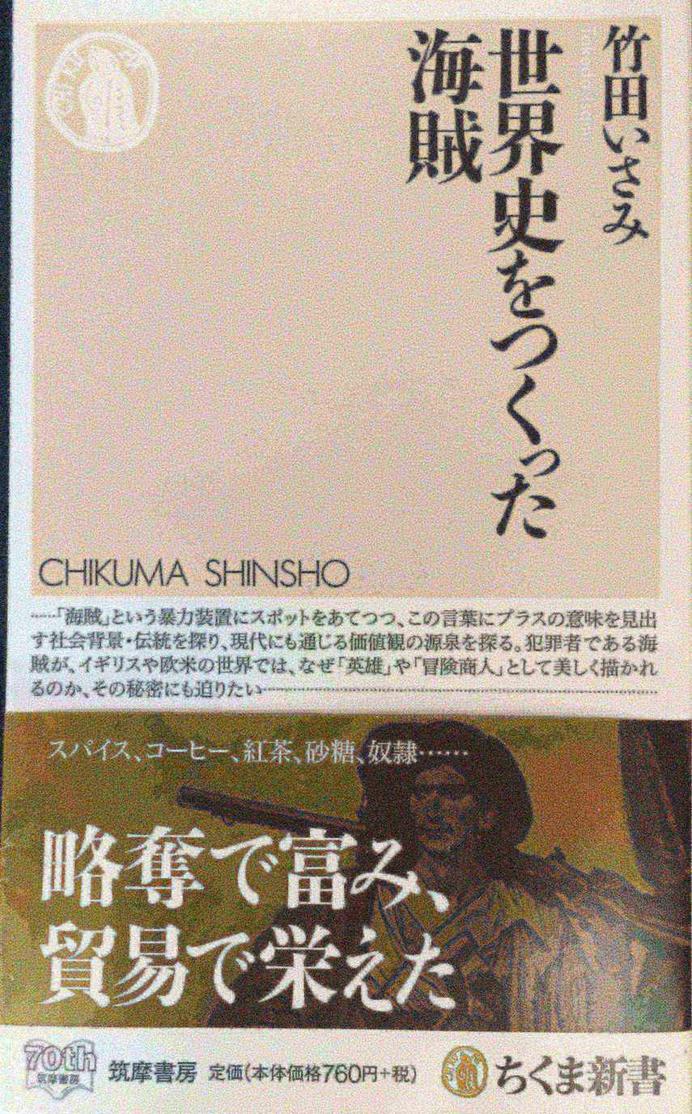 竹田いさみ
世界史をつくった
海賊
CHIKUMA SHINSHO
……「海賊」という暴力装置にスポットをあてつつ、この言葉にプラスの意味を見出
す社会背景・伝統を探り、現代にも通じる価値観の源泉を探る。犯罪者である海
賊が、イギリスや欧米の世界では、なぜ「英雄」や「冒険商人」として美しく描かれ
るのか、その秘密にも迫りたい……
スパイス、コーヒー、紅茶、砂糖、奴隷……
略奪で富み、
貿易で栄えた
70th
筑摩書房
筑摩書房 定価(本体価格760円+税)
ちくま新書